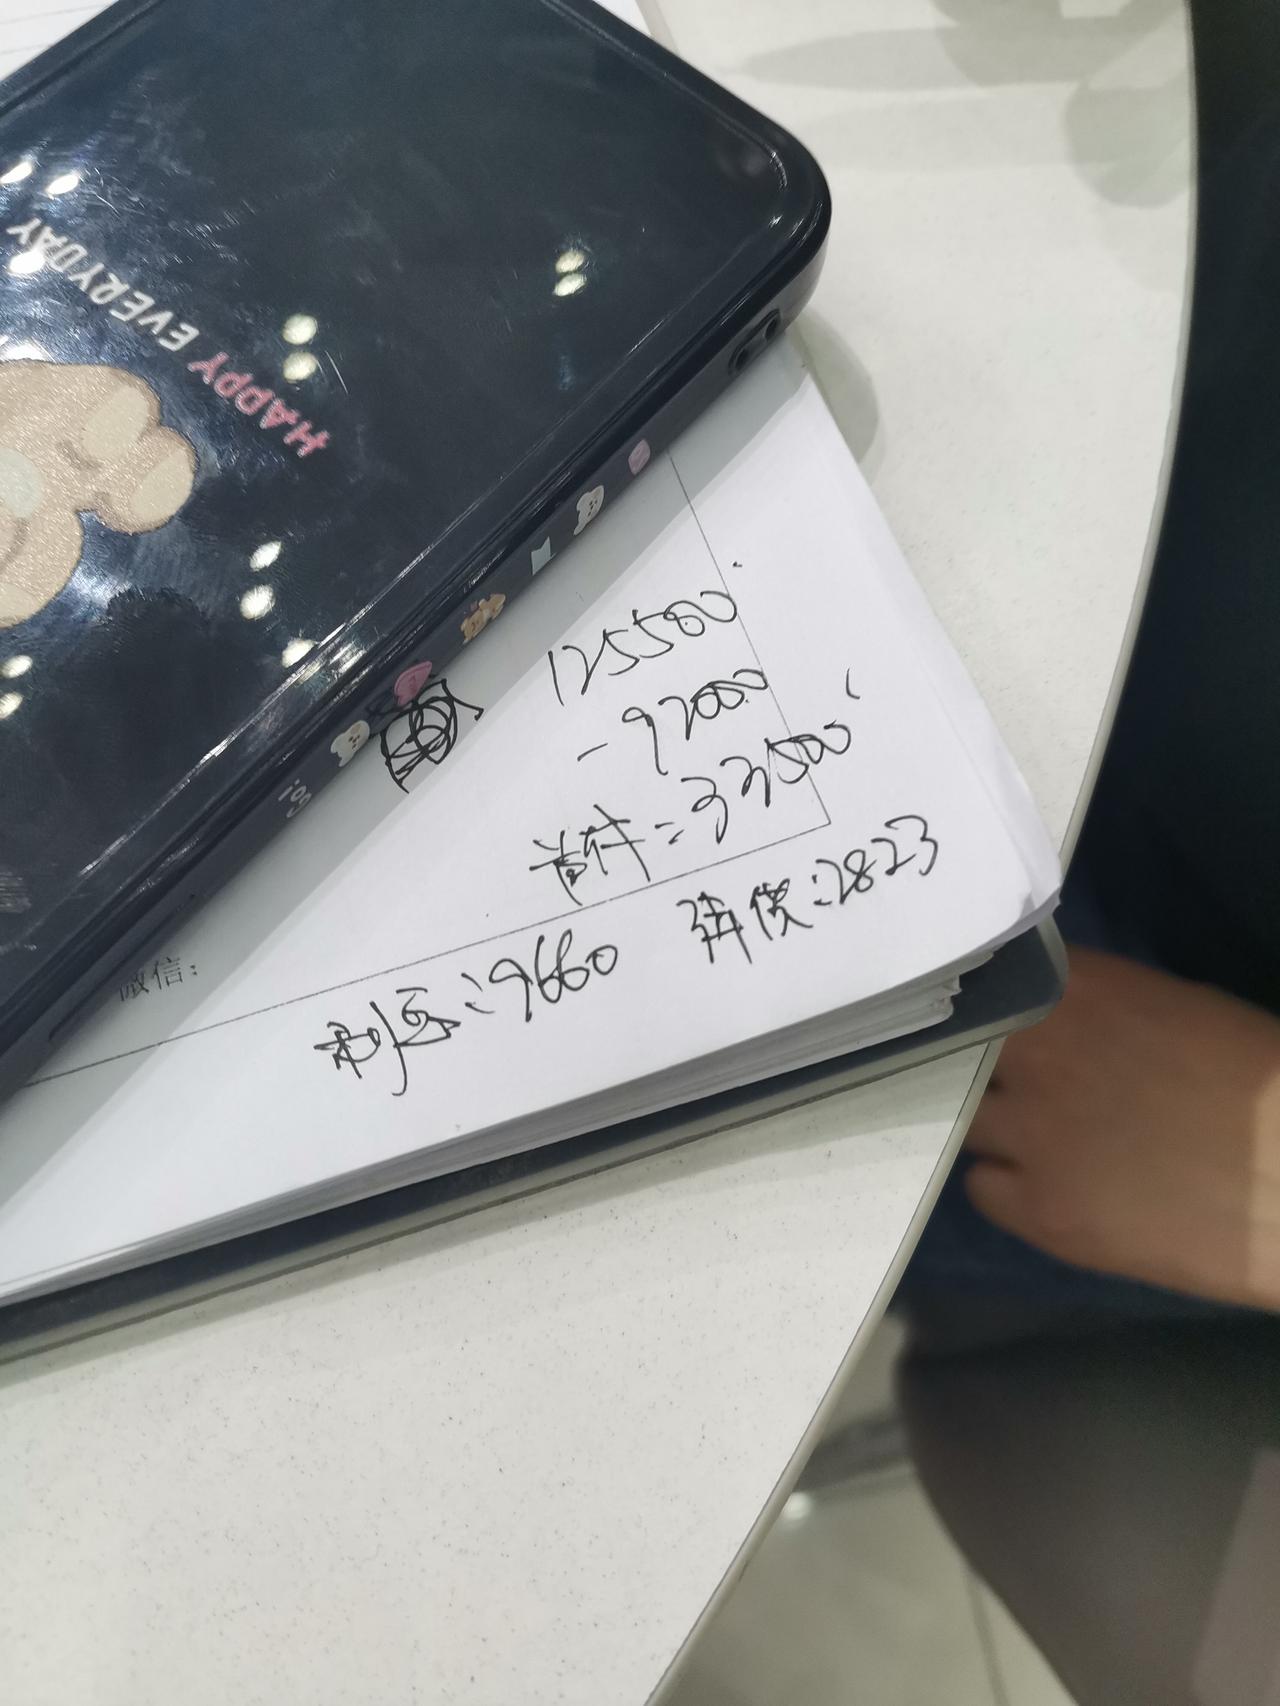 HAPPY EVERYDAY
GO!
125500
-92000
首付=33500
利息:9660 月供:2823
微信: